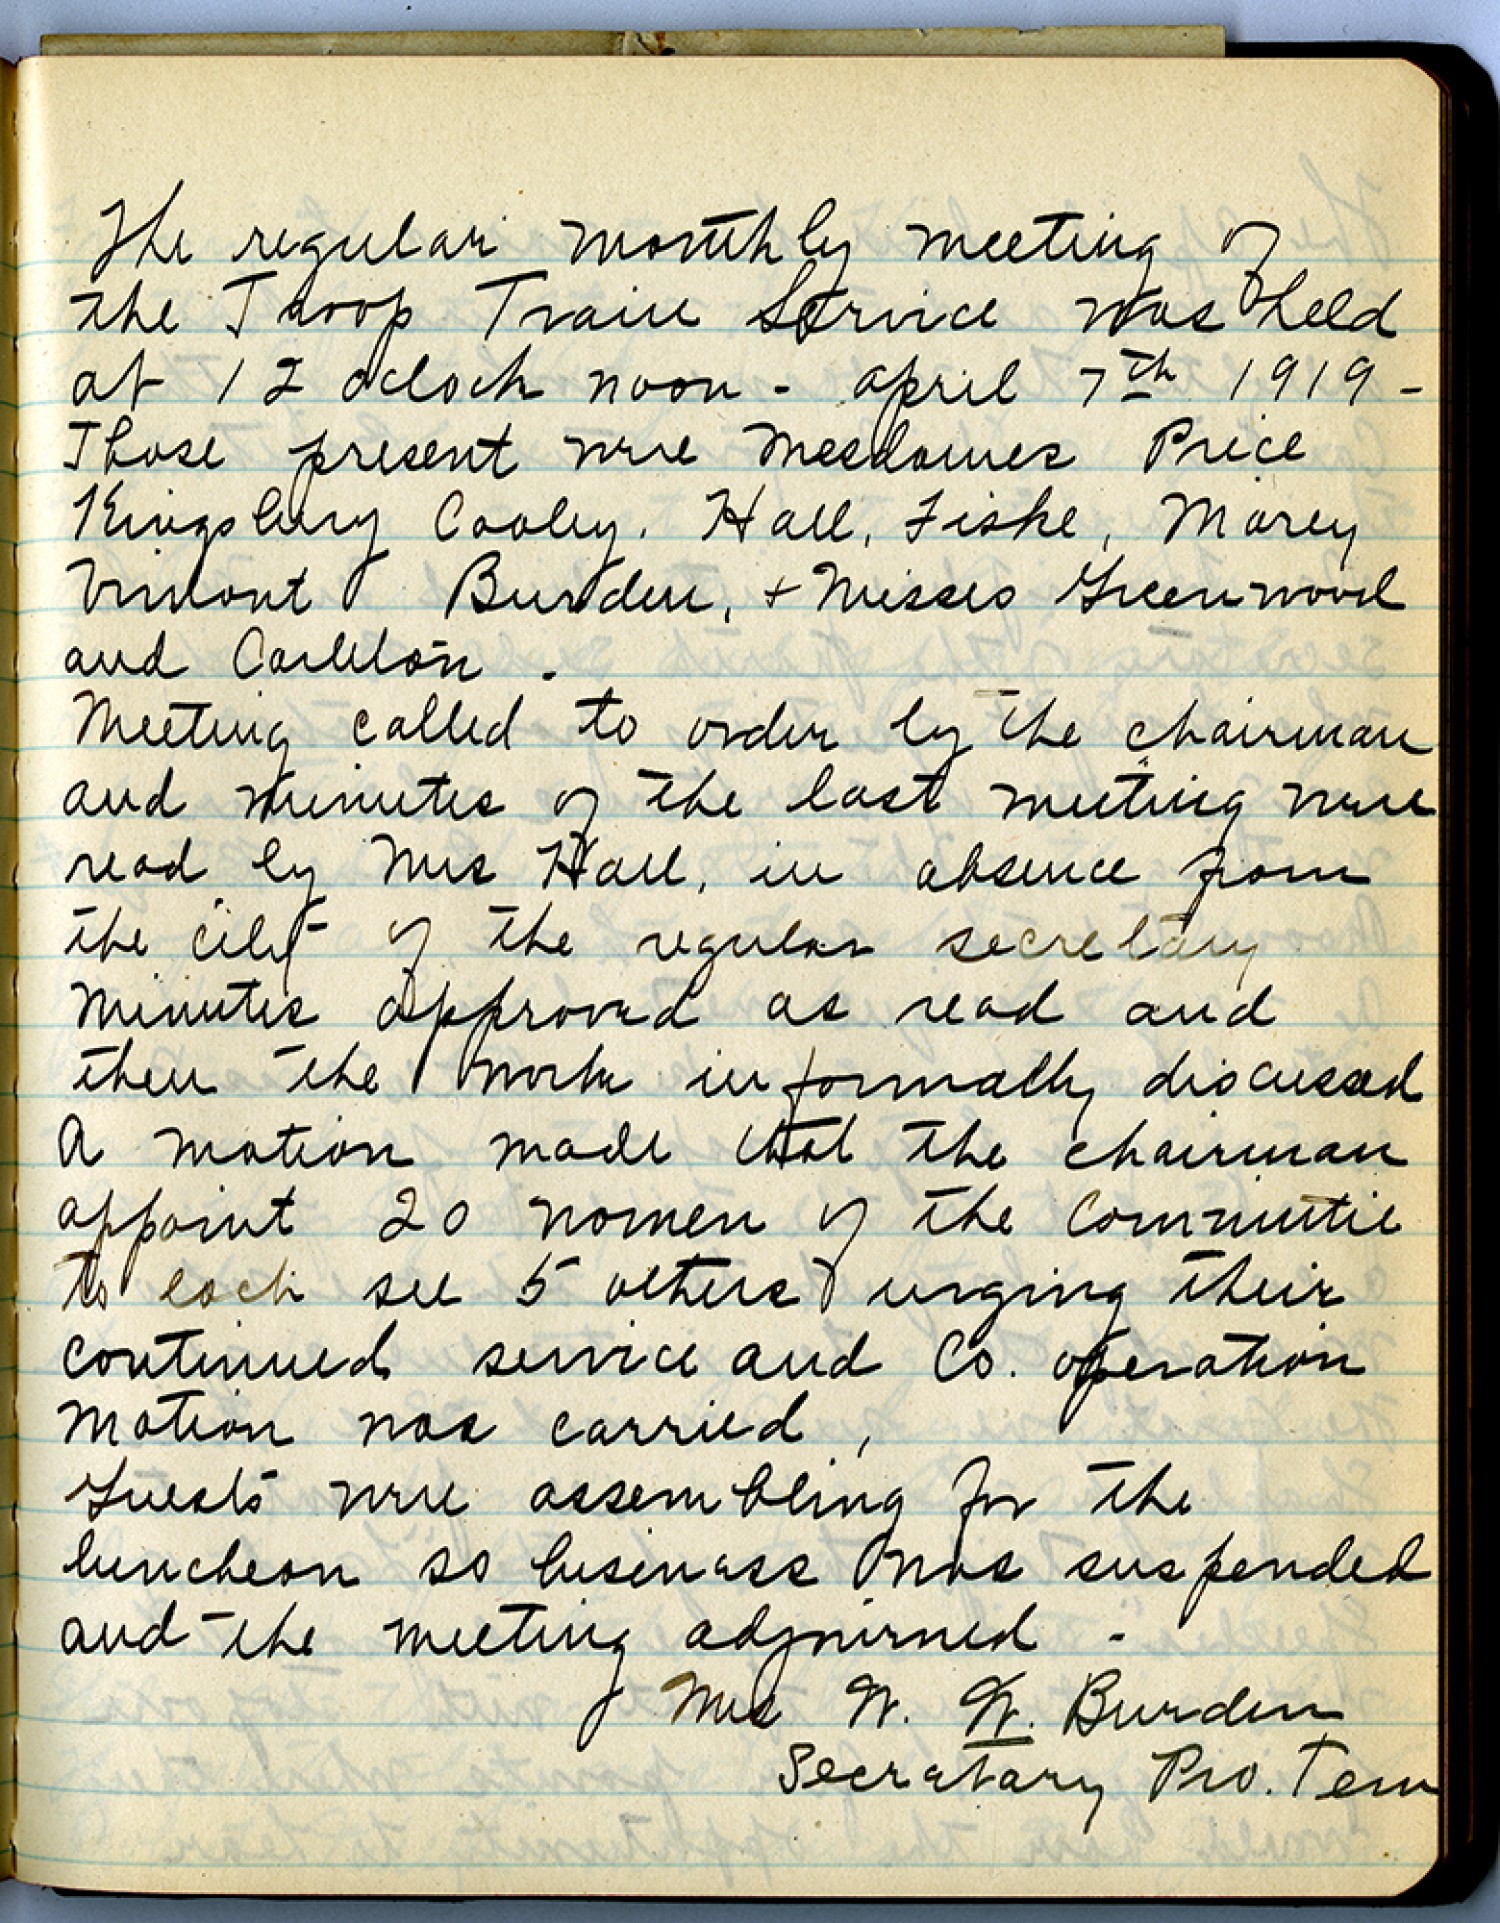 The regular monthly meeting of
the Troop Train Service was held
at 12 oclock noon - april 7th 1919 -
Those present were Mesdames Price
Kingsbury Cooley, Hall, Fiske, Morey
Vimont Burden, + Misses Greenwood
and Carleton -
Meeting called to order by the chairman
and minutes of the last meeting were
read by Mrs Hall, in absence from
the city of the regular secretary
Minutes approved as read and
then the work informally discussed
A motion made that the chairman
appoint 20 women of the Committee
to each see 5 others urging their
continued service and Co. operation
Motion was carried,
Guests were assembling for the
luncheon so business was suspended
and the meeting adjourned -
Mrs W. W. Burden
Secretary Pro. Tem